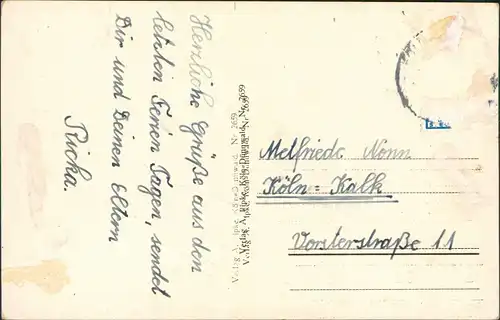 Herzliche Grüße aus den
letzten Ferien Tagen, sendet
Dir und Deinen Eltern
Richa.
Nr. 2659
Melfriede Nonn
Köln-Kalk
Vorsterstraße 11